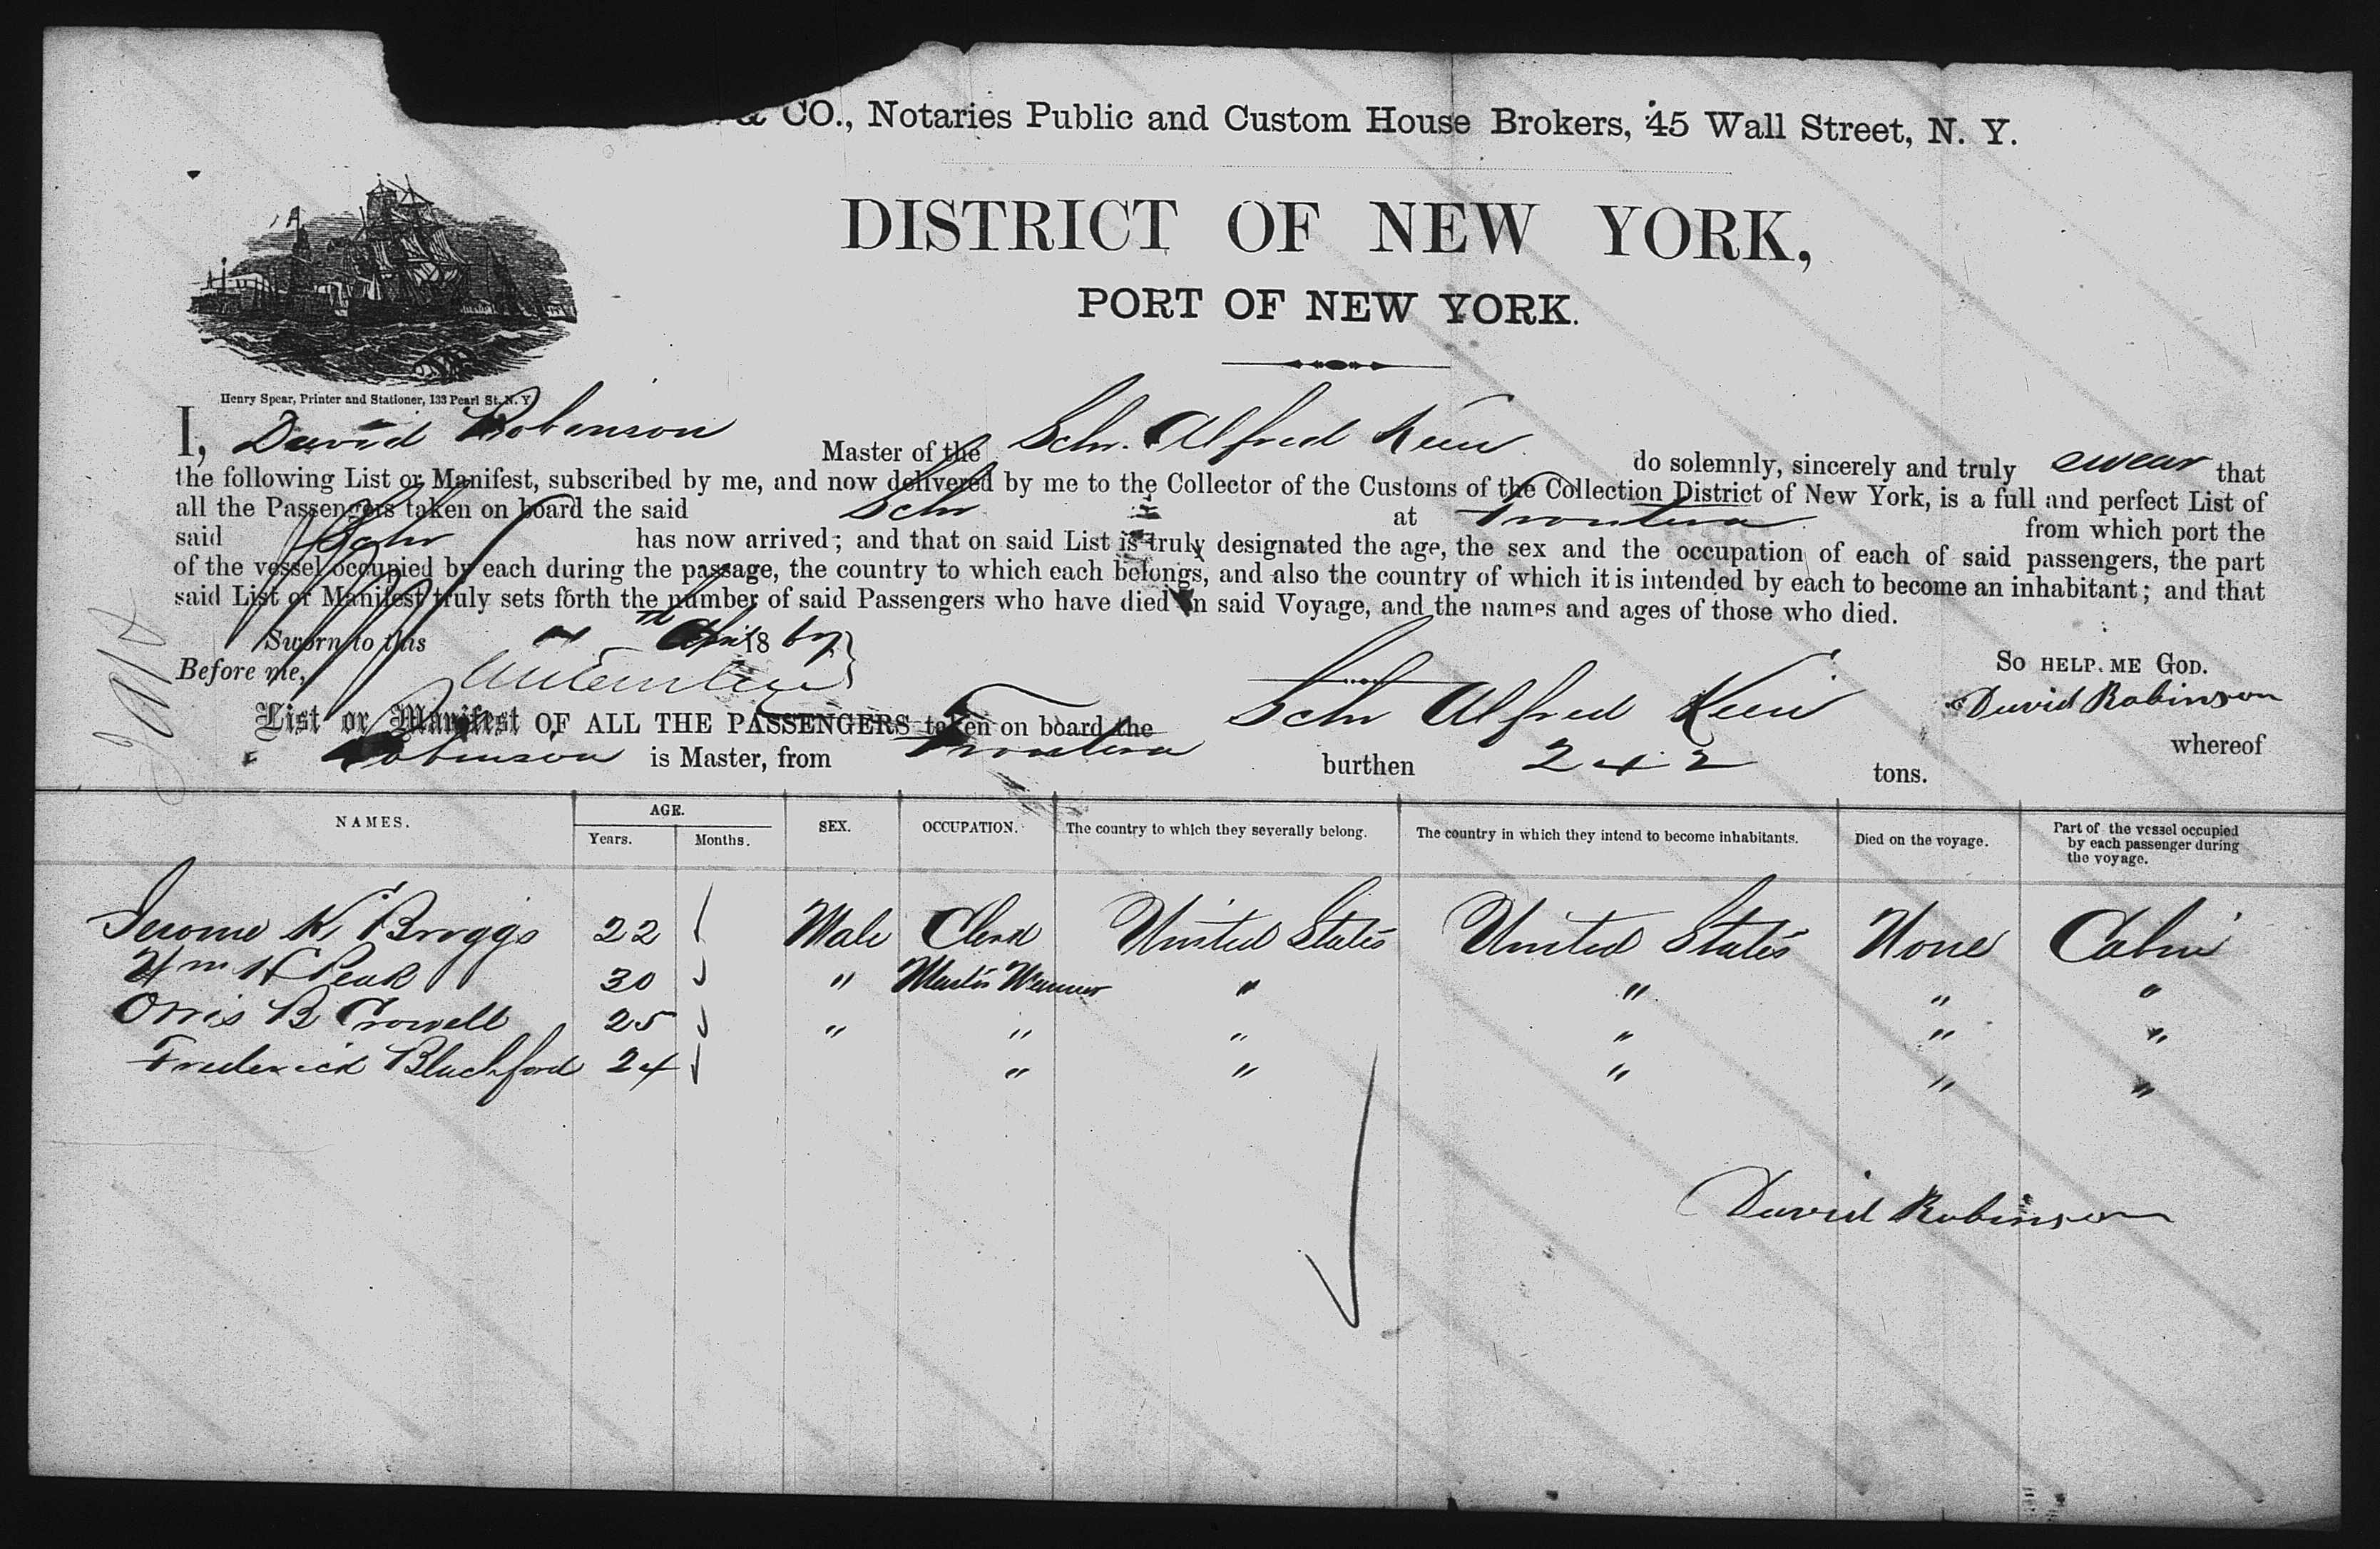 & CO., Notaries Public and Custom House Brokers, 45 Wall Street, N. Y.
DISTRICT OF NEW YORK,
PORT OF NEW YORK.
Henry Spear, Printer and Stationer, 133 Pearl St. N. Y.
I, David Robinson Master of the Schr. Alfred Keen do solemnly, sincerely and truly swear that
the following List or Manifest, subscribed by me, and now delivered by me to the Collector of the Customs of the Collection District of New York, is a full and perfect List of
all the Passengers taken on board the said Schr at Frontera from which port the
said Schr has now arrived; and that on said List is truly designated the age, the sex and the occupation of each of said passengers, the part
of the vessel occupied by each during the passage, the country to which each belongs, and also the country of which it is intended by each to become an inhabitant; and that
said List or Manifest truly sets forth the number of said Passengers who have died on said Voyage, and the names and ages of those who died.
Sworn to this April 1867
Before me,
So help me God.
David Robinson
List or Manifest OF ALL THE PASSENGERS taken on board the Schr Alfred Keen whereof
Robinson is Master, from Frontera burthen 242 tons.
NAMES. AGE. Years. Months. SEX. OCCUPATION. The country to which they severally belong. The country in which they intend to become inhabitants. Died on the voyage. Part of the vessel occupied by each passenger during the voyage.
Jerome K Briggs 22 Male Clerk United States United States None Cabin
Wm H Peak 30 " Master Mariner " " " "
Orris B Crowell 25 " " " " " "
Frederick Blachford 24 " " " " "
David Robinson